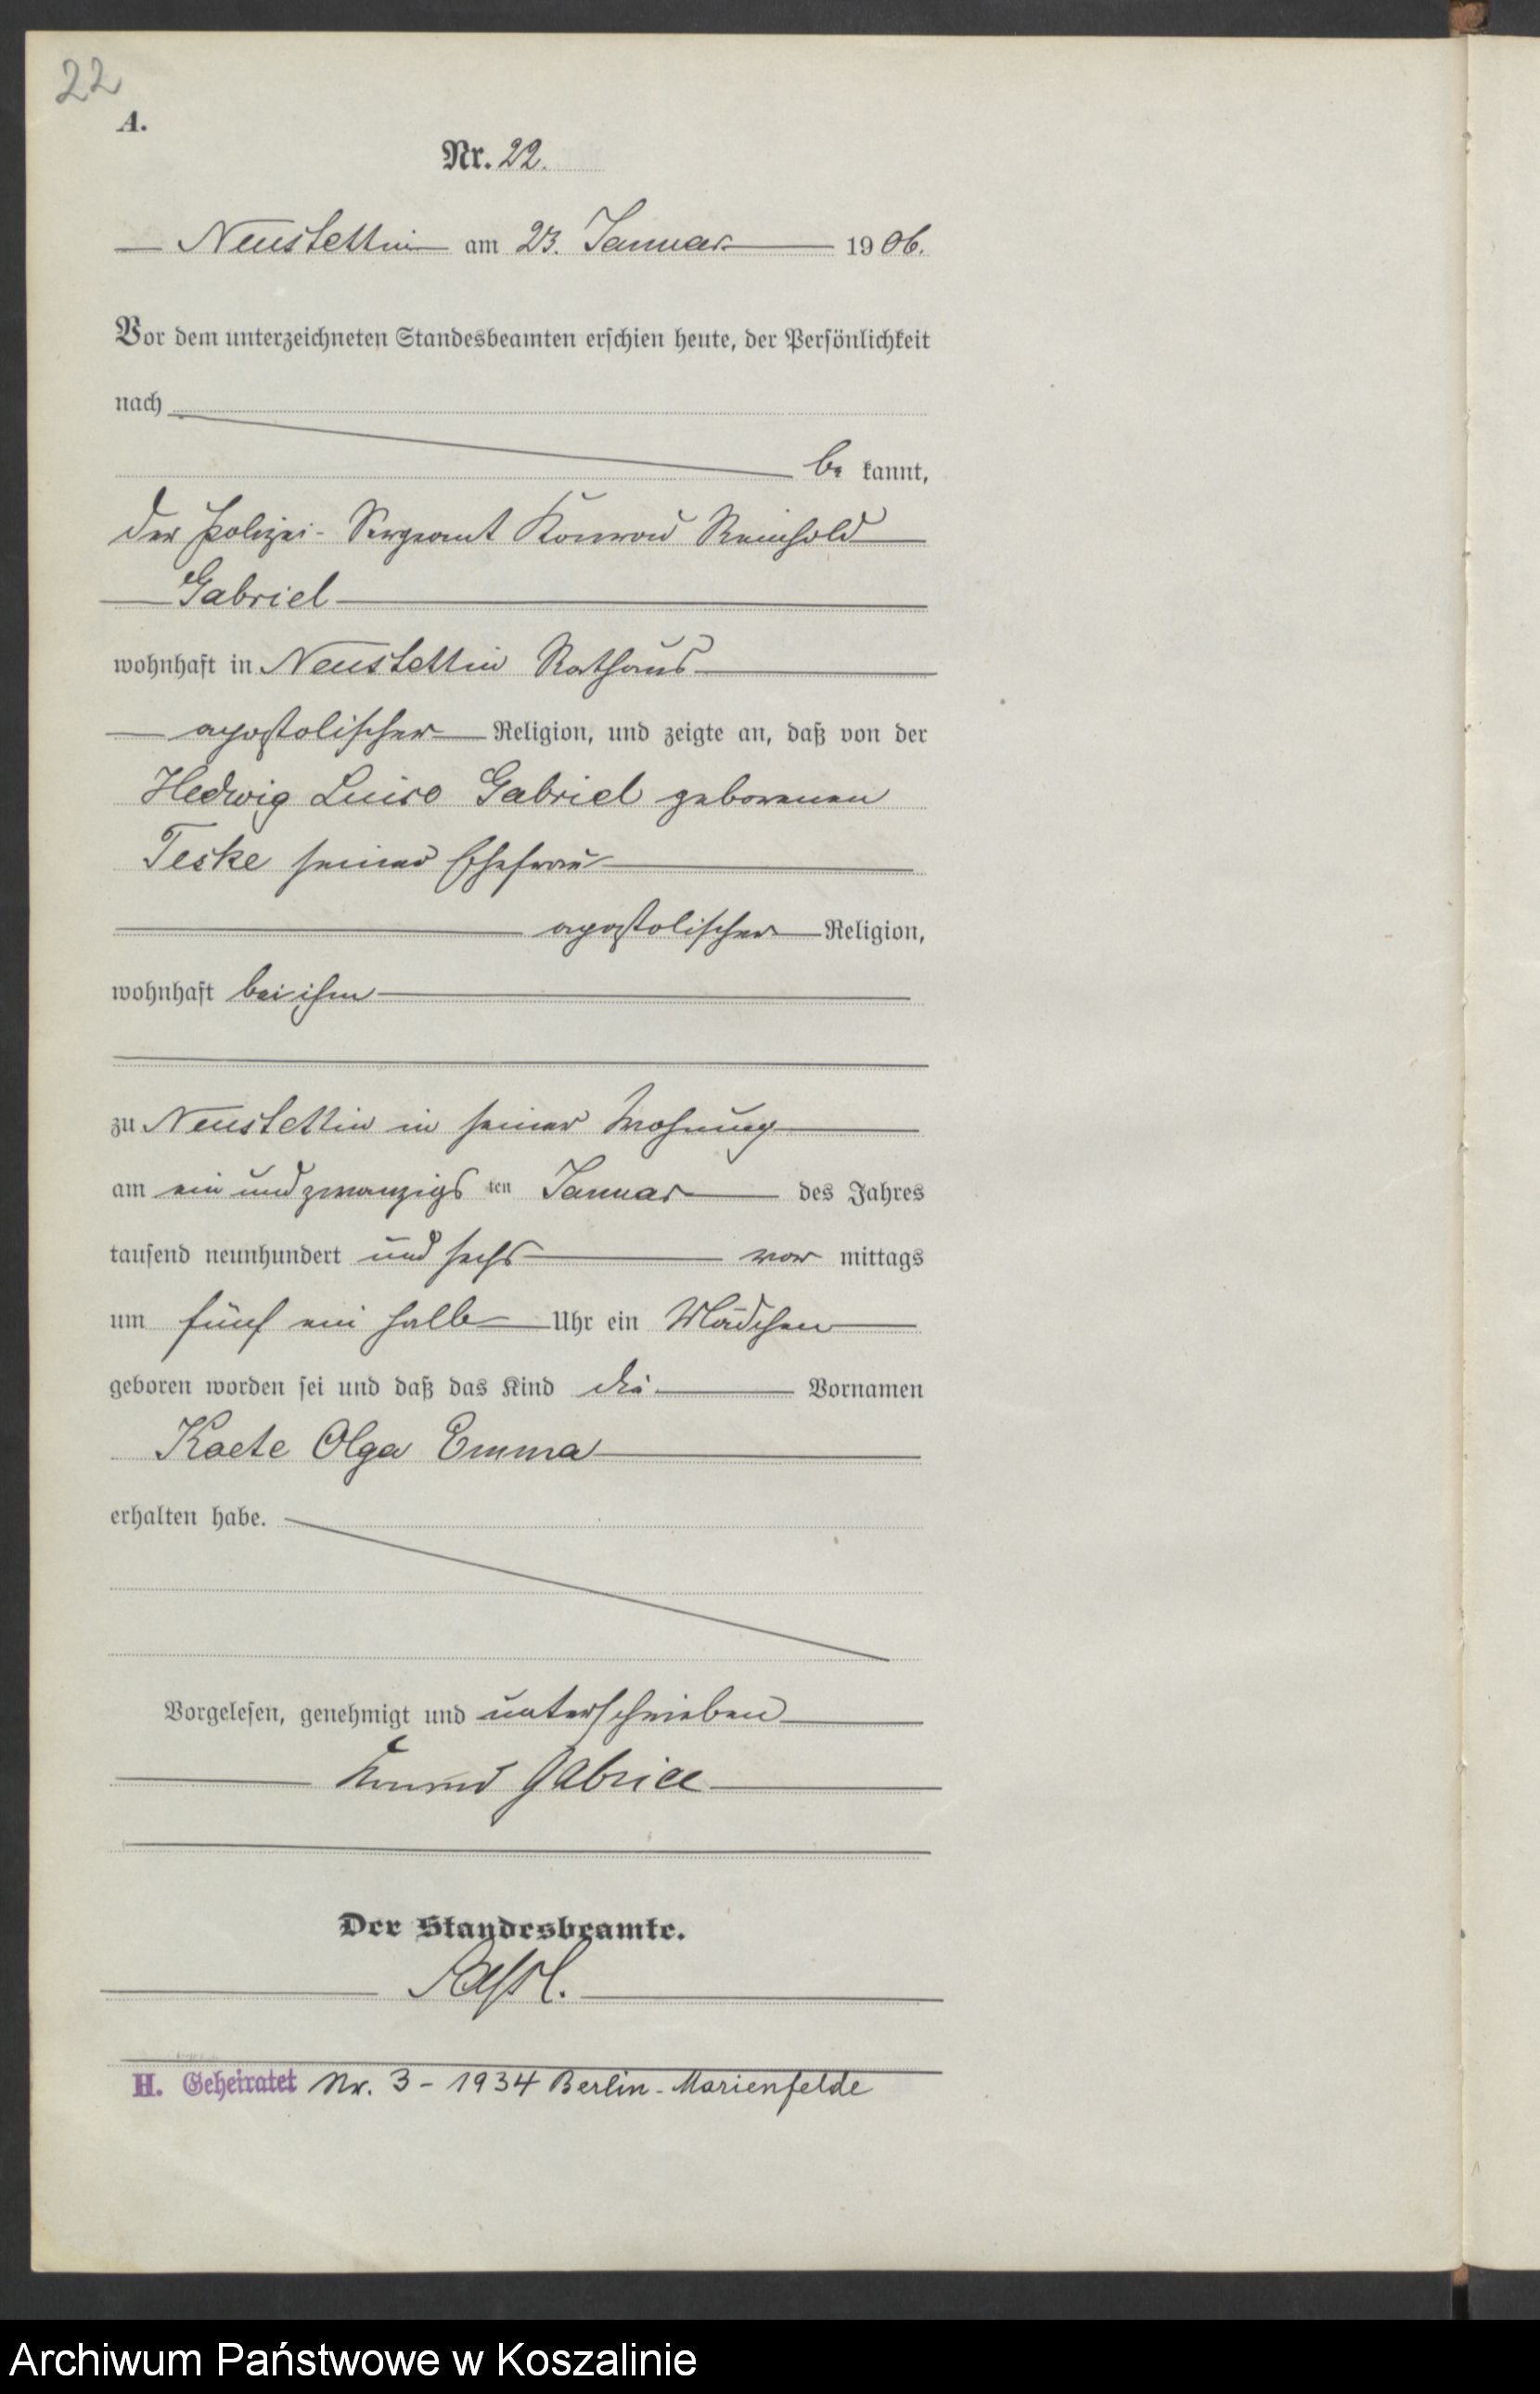 22
A.
Nr. 22.
Neustettin am 23. Januar 1906.
Vor dem unterzeichneten Standesbeamten erschien heute, der Persönlichkeit
nach
be kannt,
der Polizei-Sergeant Konrad Reinhold
Gabriel
wohnhaft in Neustettin Rathaus
apostolischer Religion, und zeigte an, daß von der
Hedwig Luise Gabriel geborenen
Teske seiner Ehefrau
apostolischer Religion,
wohnhaft bei ihm
zu Neustettin in seiner Wohnung
am ein und zwanzigs ten Januar des Jahres
tausend neunhundert und sechs vor mittags
um fünf ein halb Uhr ein Mädchen
geboren worden sei und daß das Kind die Vornamen
Kaete Olga Emma
erhalten habe.
Vorgelesen, genehmigt und unterschrieben
Konrad Gabriel
Der Standesbeamte.
H. Geheiratet Nr. 3 - 1934 Berlin-Marienfelde
Archiwum Państwowe w Koszalinie